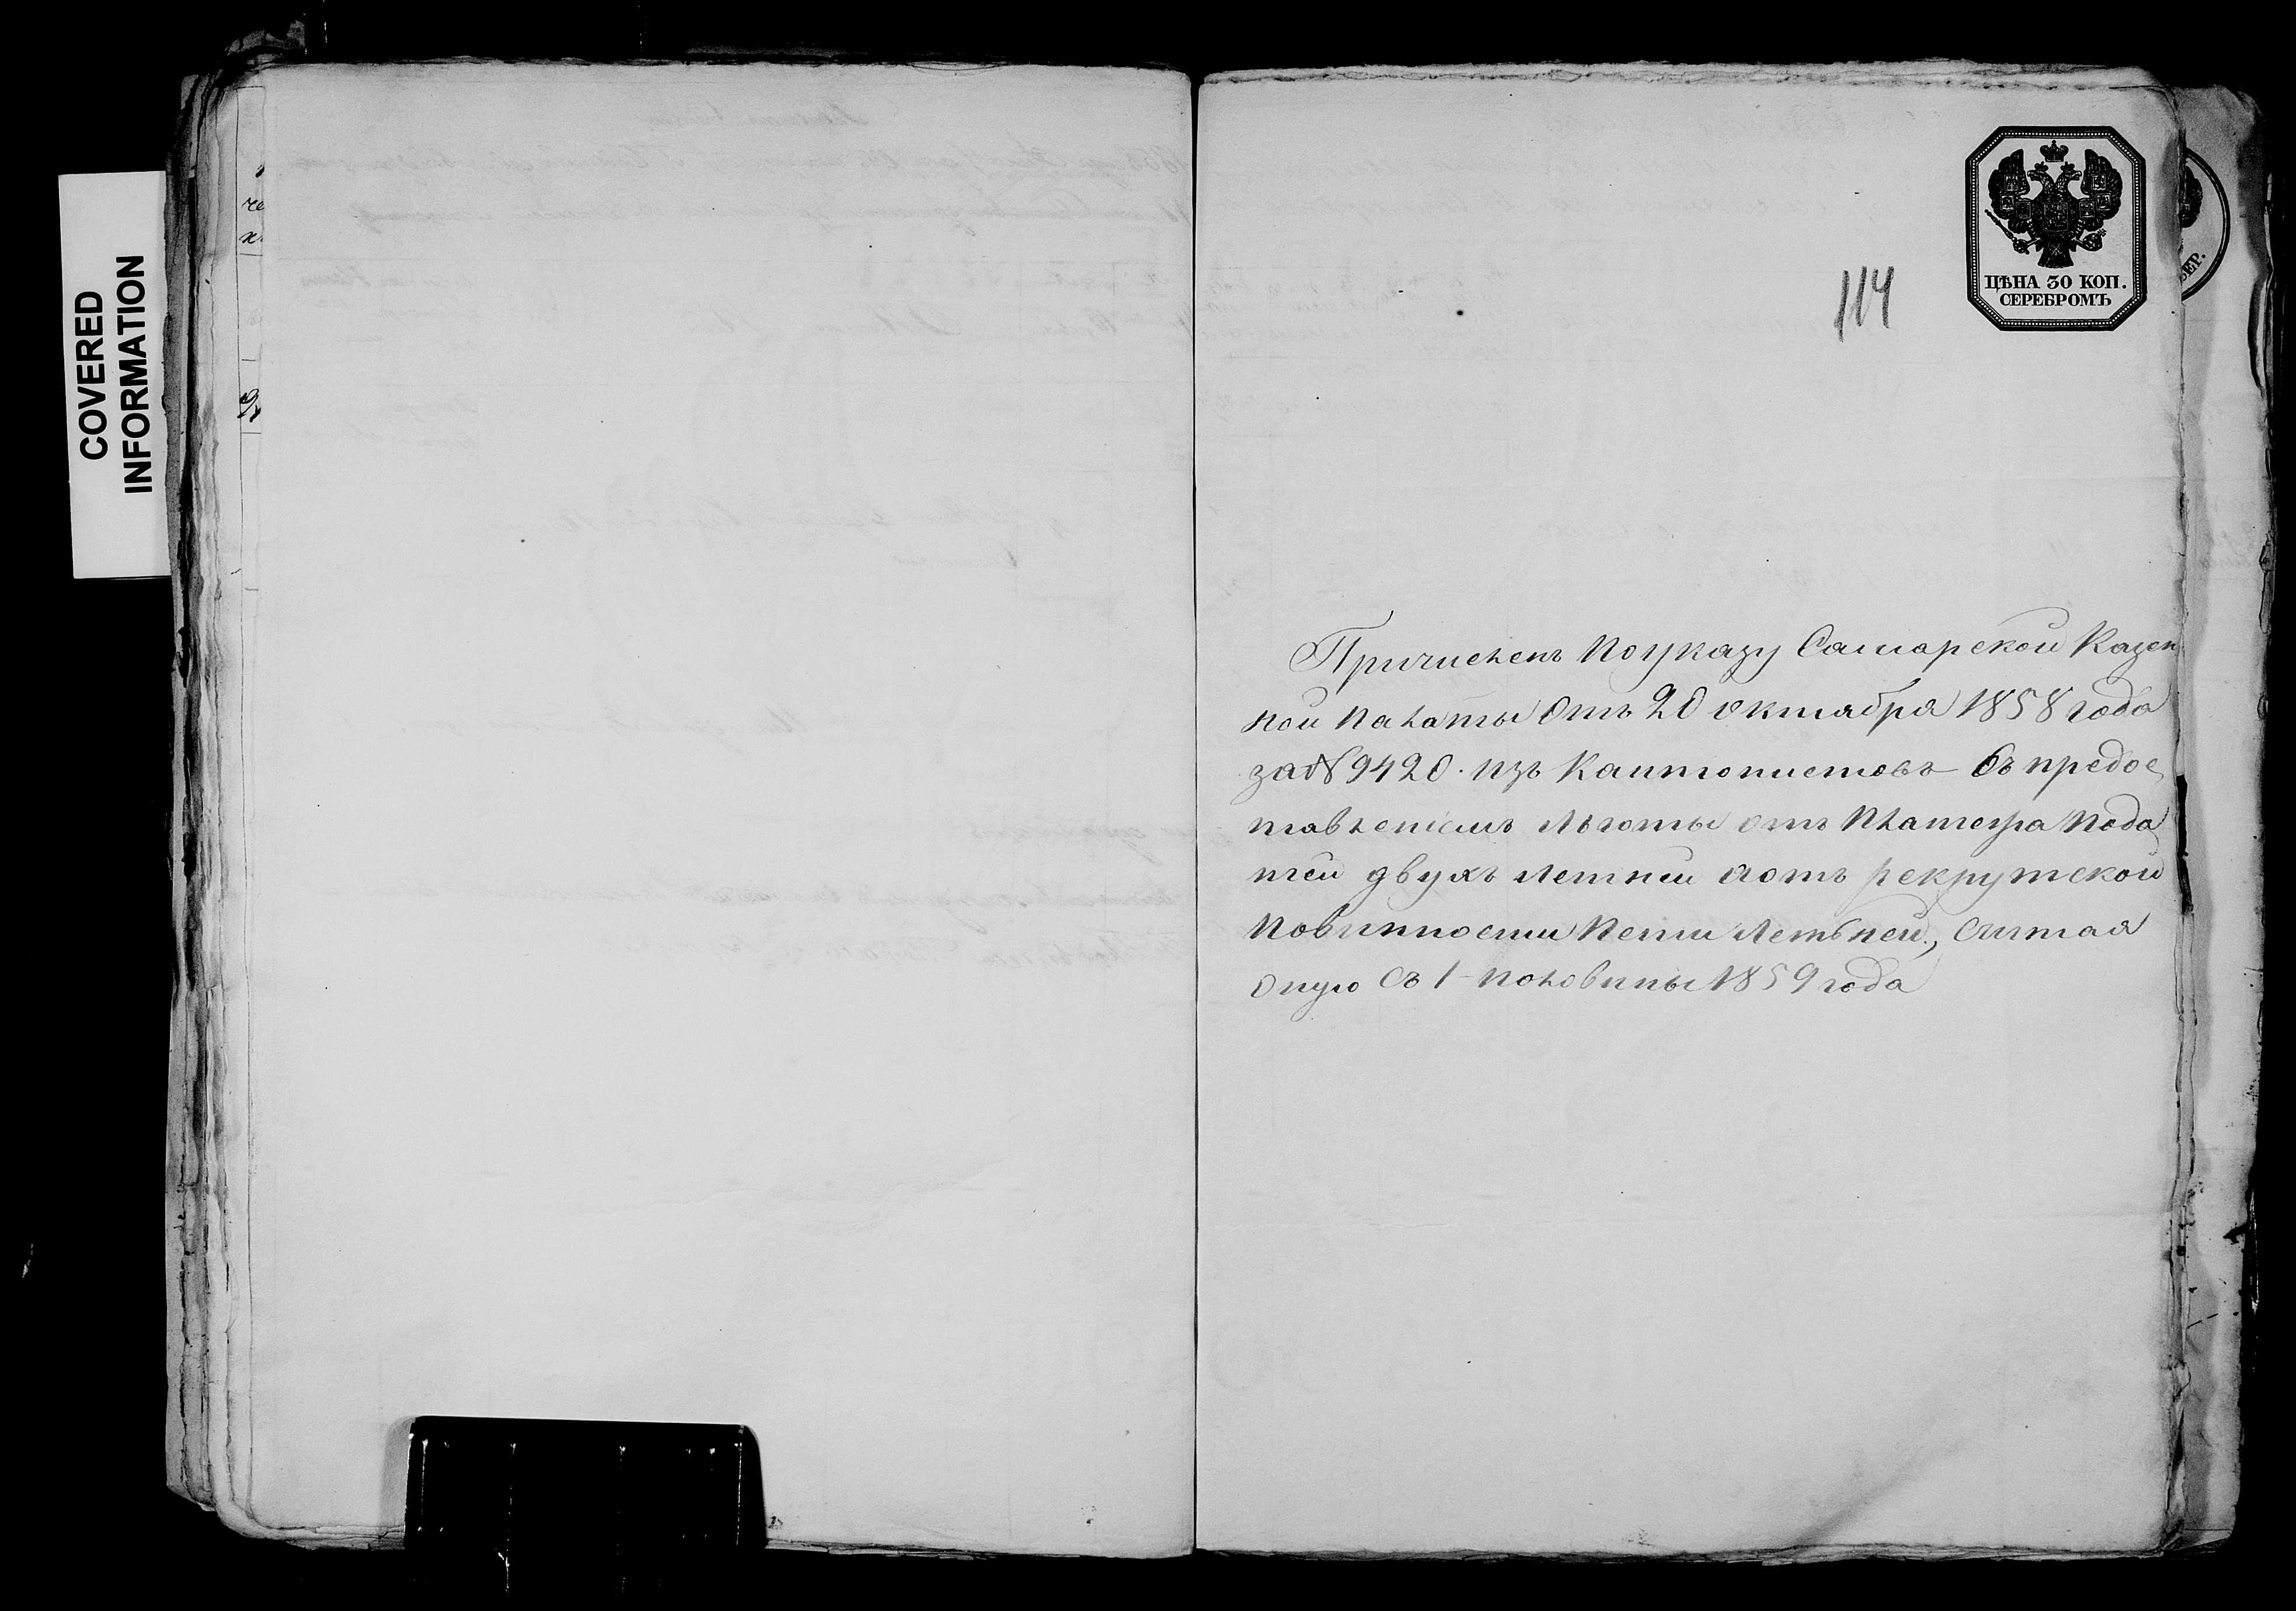 COVERED
INFORMATION
ЦѢНА 30 КОП.
СЕРЕБРОМЪ
114
Причисленъ поуказу Самарской Казен
ной палаты отъ 20 октября 1858 года
за № 9420. изъ Кантонистовъ съ предос
тавленіемъ льготы отъ платежа пода
тей двухъ летней аотъ рекрутской
повинности пети летьней, считая
оную съ 1 половины 1859 года